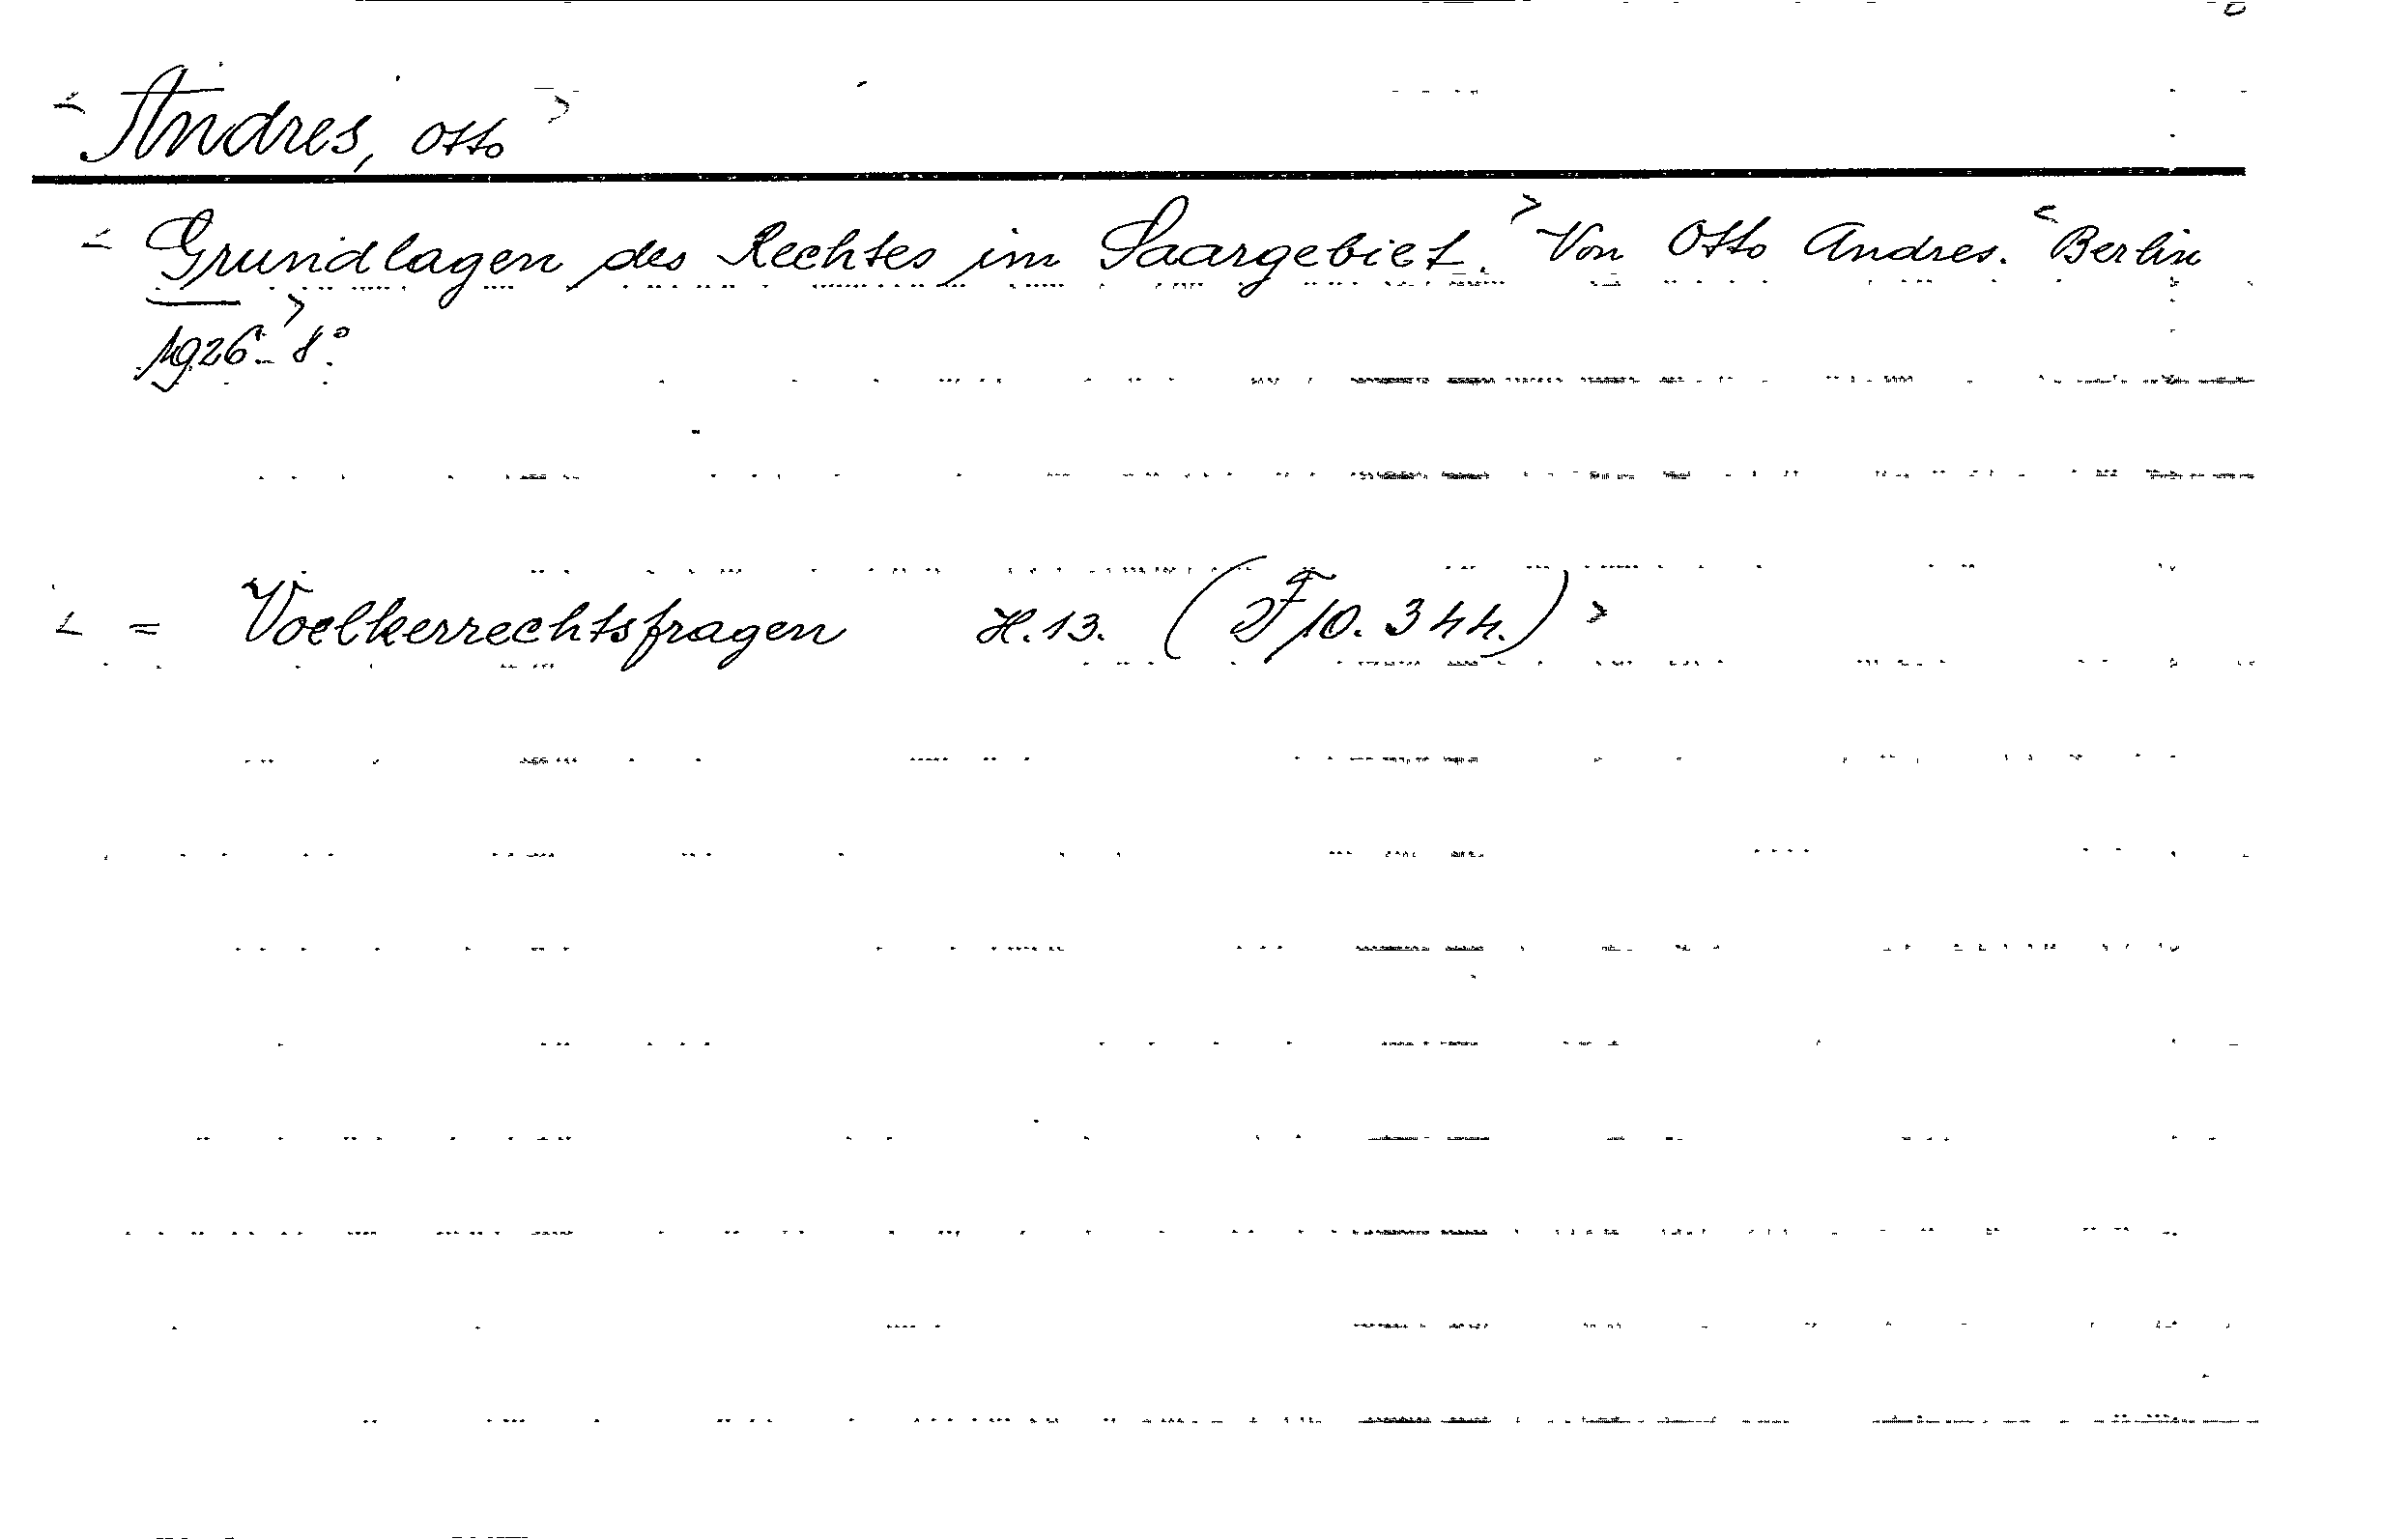 < Andres, Otto >
< Grundlagen des Rechtes im Saargebiet. > Von Otto Andres. < Berlin
1926. > 8°.
< = Voelkerrechtsfragen H.13. (F 10. 344.) >